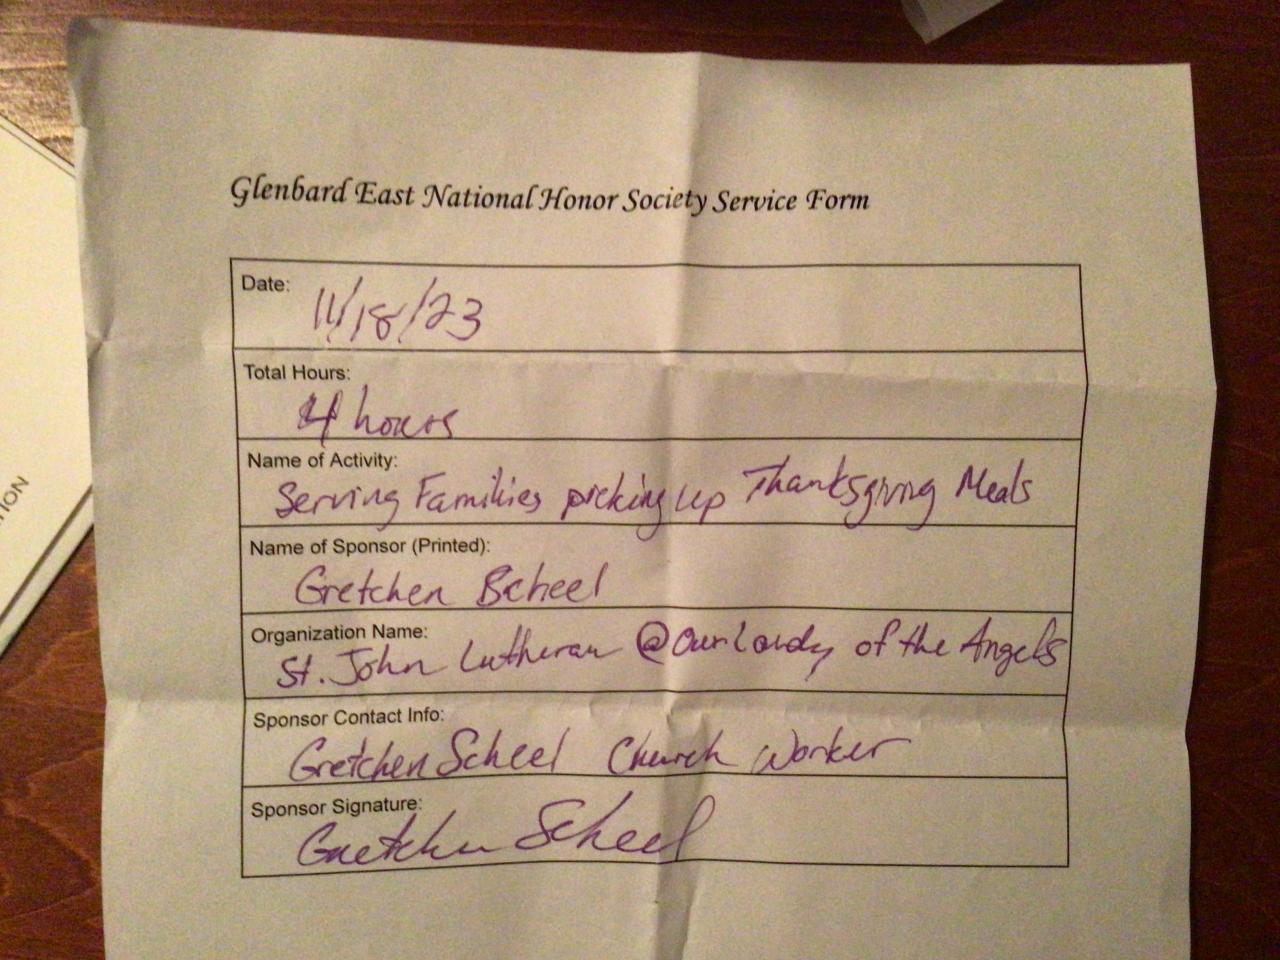 Glenbard East National Honor Society Service Form
Date:
11/18/23
Total Hours:
4 hours
Name of Activity:
Serving Families picking up Thanksgiving Meals
Name of Sponsor (Printed):
Gretchen Scheel
Organization Name:
St. John Lutheran @ Our Lady of the Angels
Sponsor Contact Info:
Gretchen Scheel Church Worker
Sponsor Signature:
Gretchen Scheel